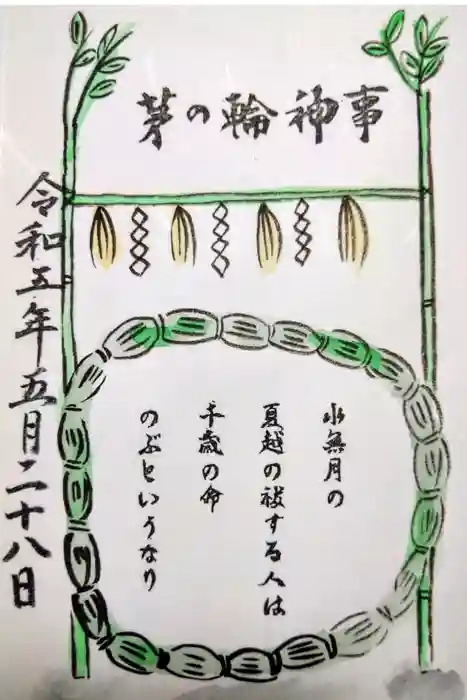 茅の輪神事
水無月の
夏越の祓する人は
千歳の命
のぶといふなり
令和五年五月二十八日